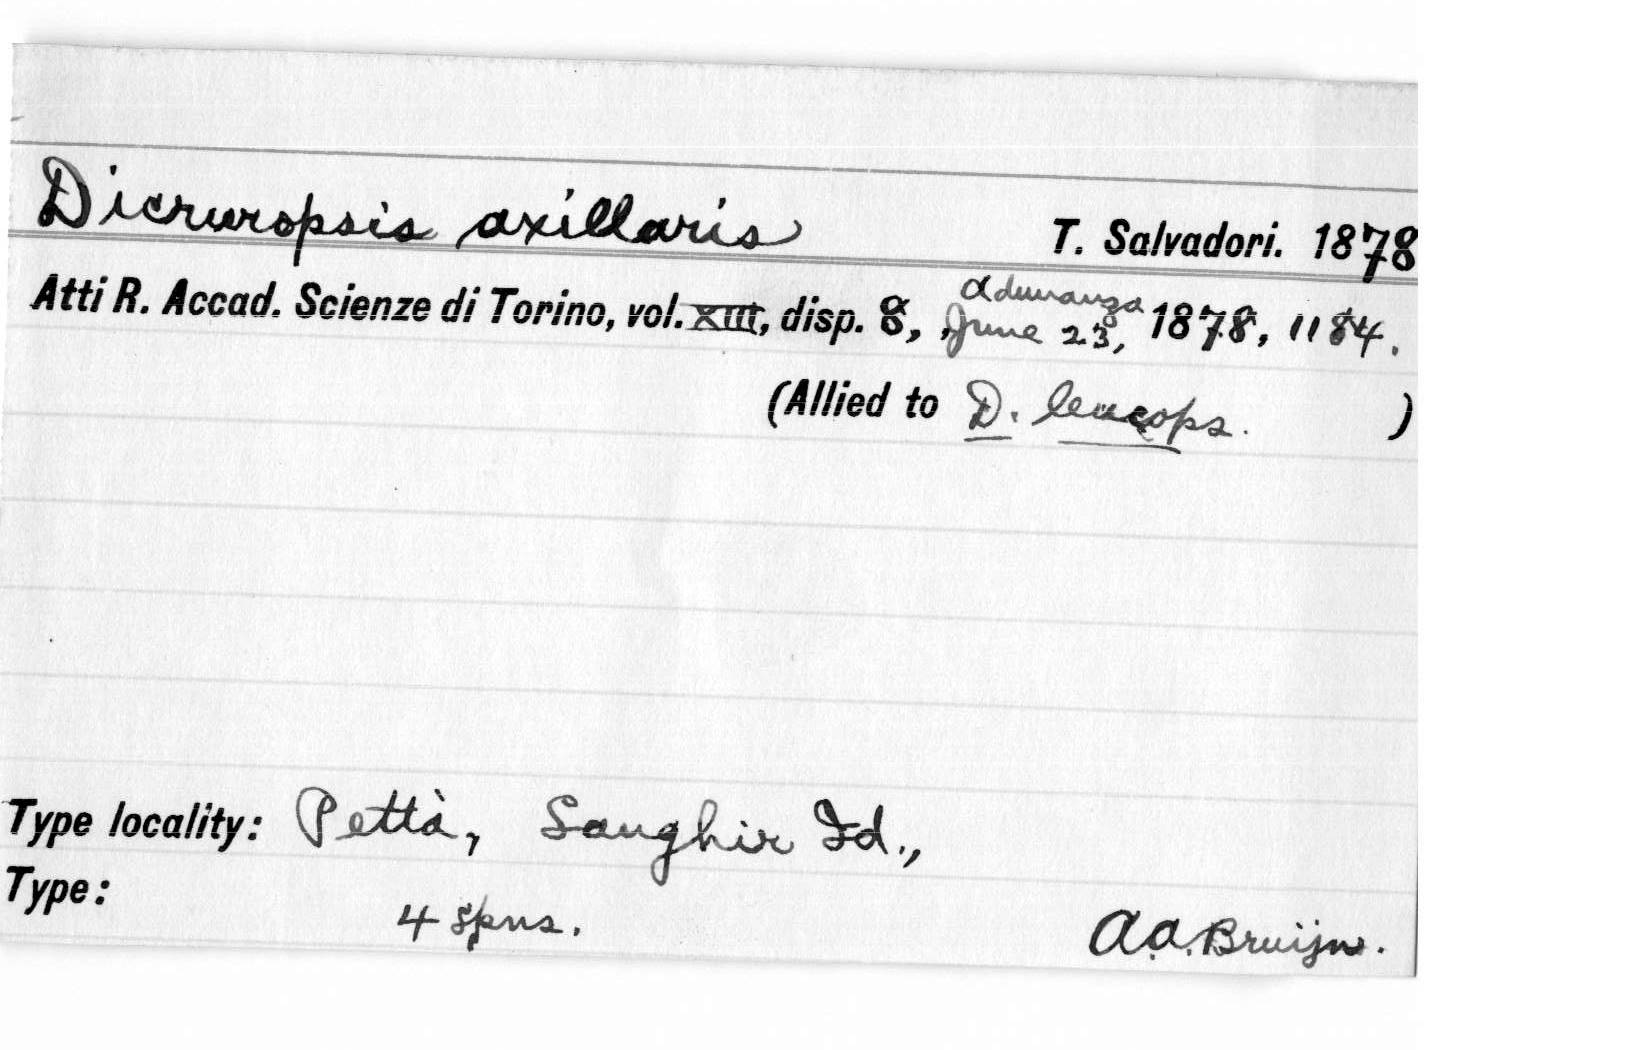 Dicruropsis axillaris T. Salvadori. 1878
Atti R. Accad. Scienze di Torino, vol. XIII, disp. 8, Adunanza June 23, 1878, 1184.
(Allied to D. leucops. )
Type locality: Pettà, Sanghir Id.,
Type: 4 spns. A.A. Bruijn.